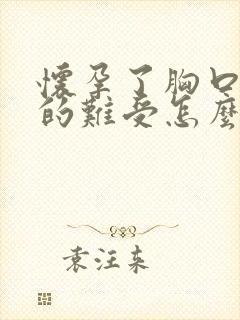 懷孕了胸口
的難受怎麼
袁汪束